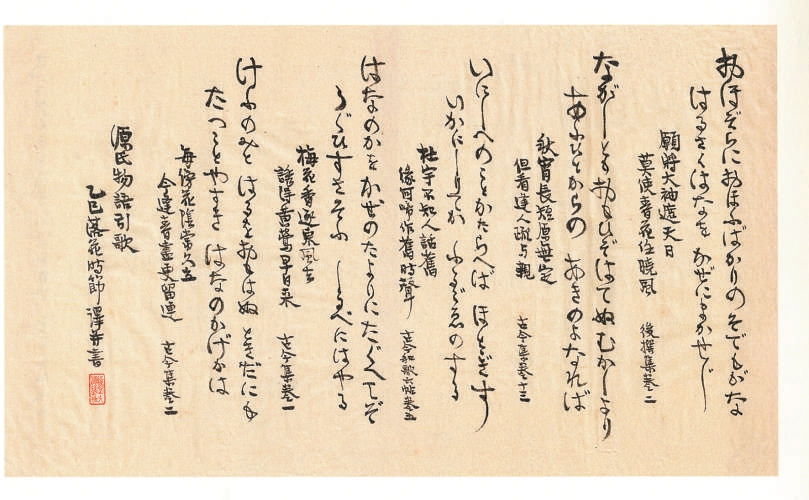 おほぞらにおほふばかりのそでもがな
はるさくはなを かぜにまかせじ
願將大袖遮天日
莫使春花任曉風 後撰集巻二
ながしともおもひぞはてぬむかしより
あふひとからの あきのよなれば
秋宵長短原無定
但看逢人疏与親 古今集巻十三
いにしへのことかたらへば ほととぎす
いかにしりてか ふるごゑのする
杜宇不知人話舊
緣何啼作舊時聲 古今和歌六帖巻五
はなのかを かぜのたよりにたぐへてぞ
うぐひすさそふ しるべにはやる
梅花香逐東風去
誘得黃鶯早日来 古今集巻一
けふのみと はるをおもはぬ ときだにも
たつことやすき はなのかげかは
每傍花陰常久立
今逢春盡更留連 古今集巻二
源氏物語引歌
乙巳落花時節 澤幷書